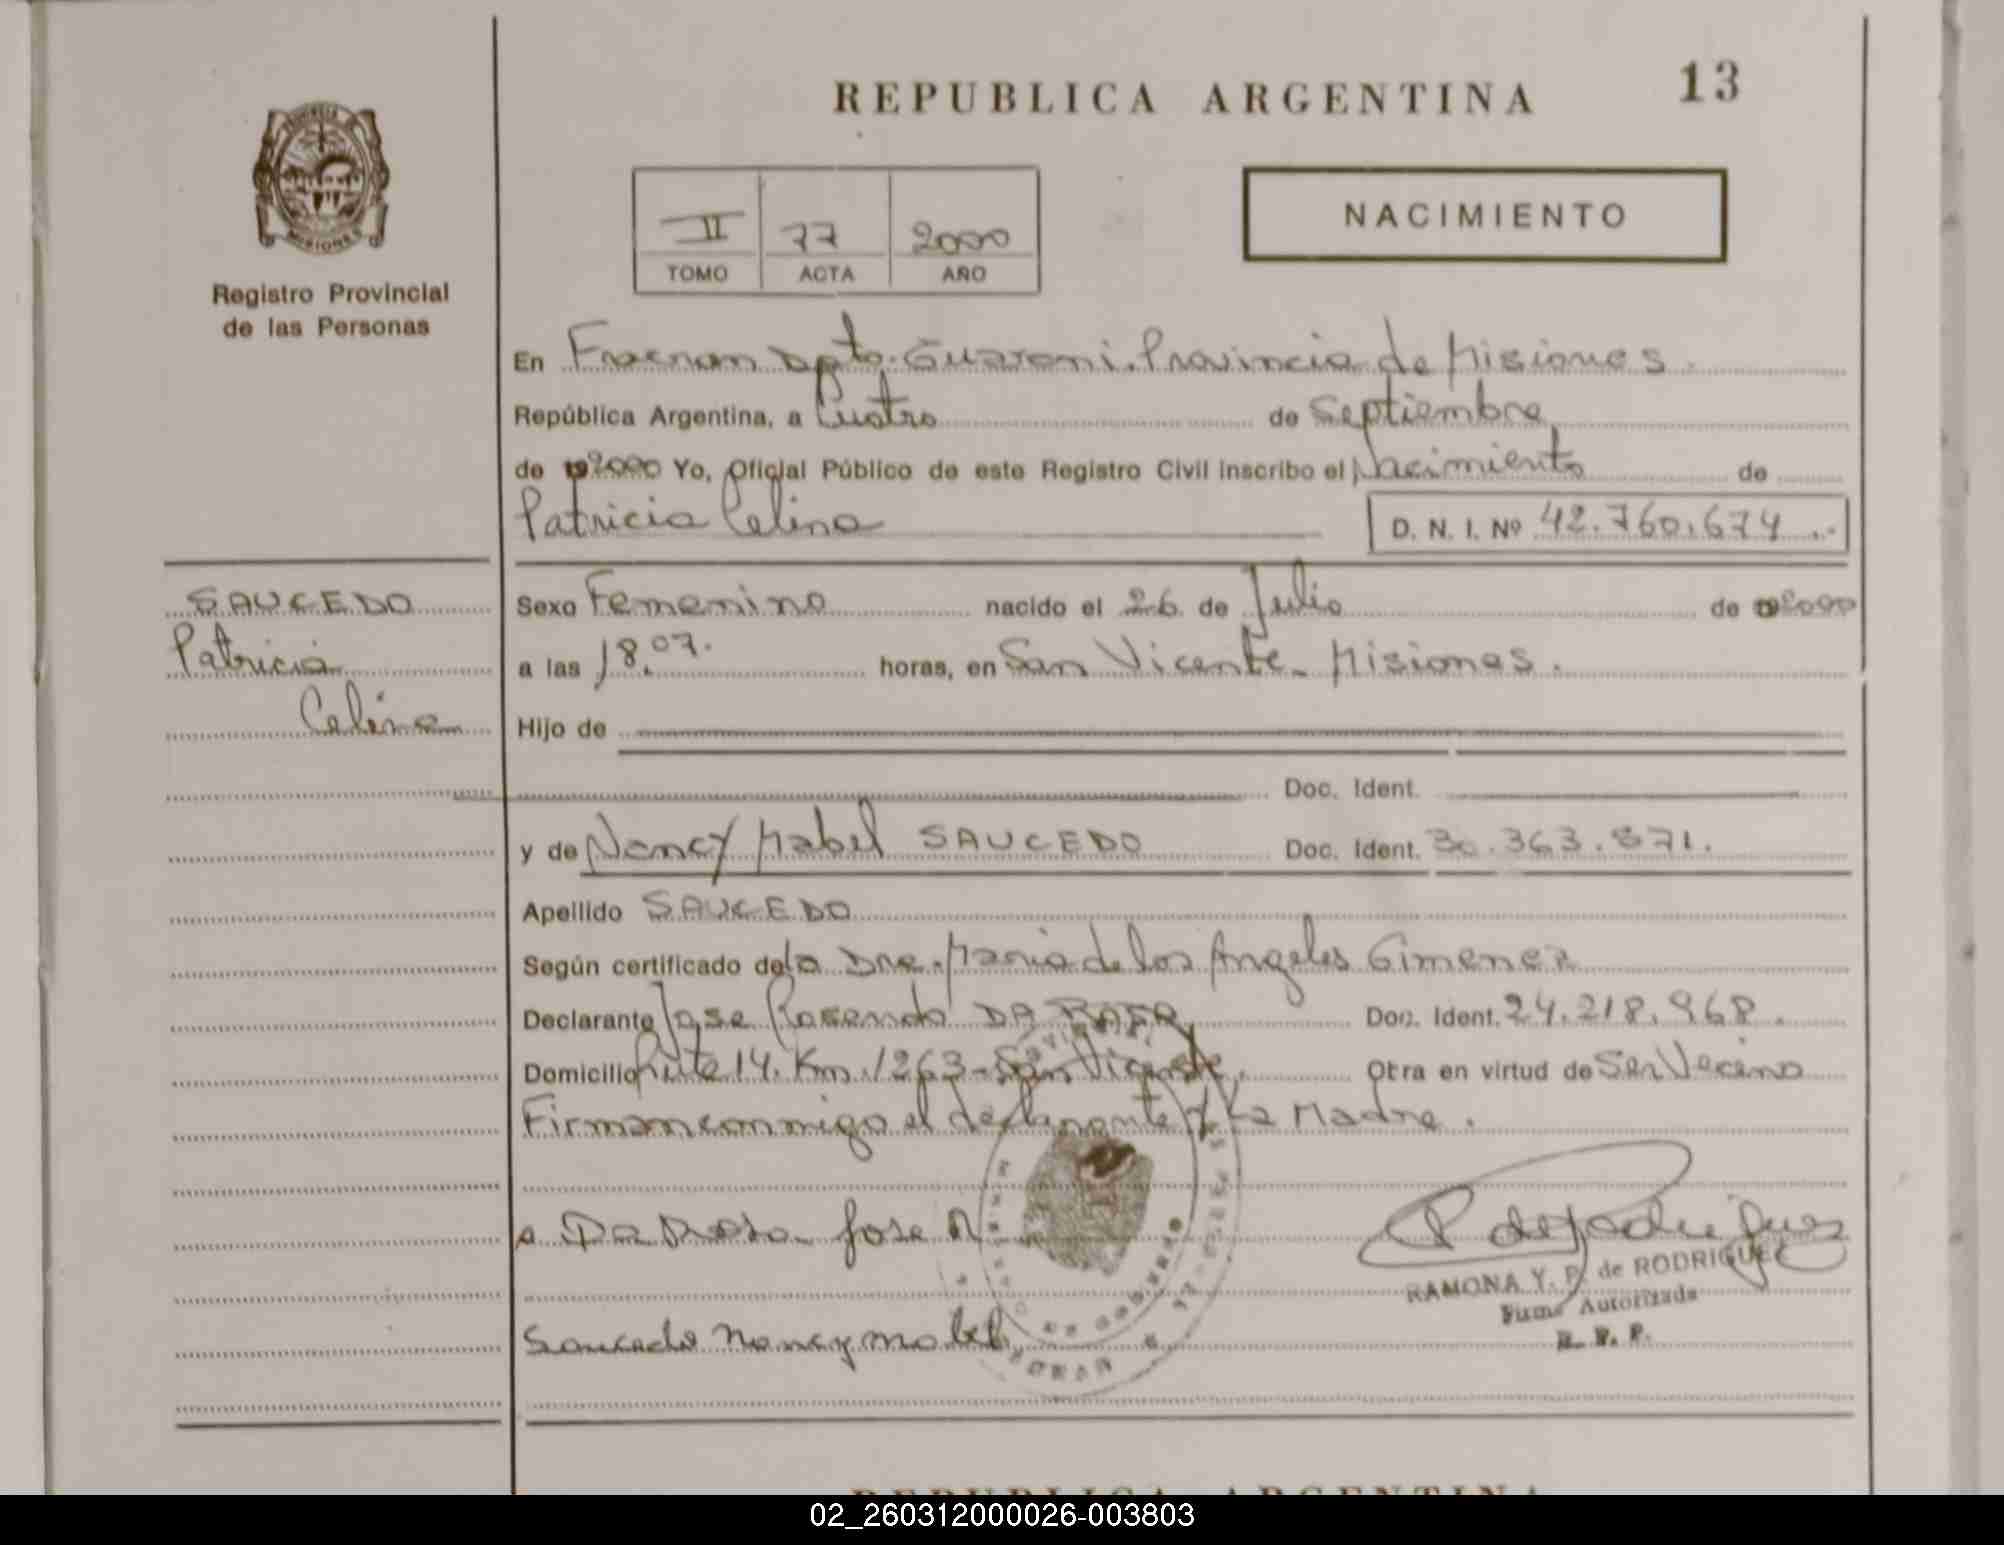 REPUBLICA ARGENTINA
13
II 77 2000
TOMO ACTA AÑO
NACIMIENTO
MISIONES
Registro Provincial
de las Personas
En Fracran Dpto. Guarani. Provincia de Misiones.
República Argentina, a Cuatro de Septiembre
de 2000 Yo, Oficial Público de este Registro Civil inscribo el Nacimiento de
Patricia Celina
D. N. I. Nº 42.760.674
SAUCEDO
Patricia
Celina
Sexo Femenino nacido el 26 de Julio de 2000
a las 18.07. horas, en San Vicente - Misiones.
Hijo de
Doc. Ident.
y de Nancy Mabel SAUCEDO Doc. Ident. 30.363.871.
Apellido SAUCEDO
Según certificado de la Dra. Maria de los Angeles Gimenez
Declarante Jose Rosendo DA Doc. Ident. 24.218.968.
Domicilio Ruta 14. Km. 1263 - San Vicente. Otra en virtud de Ser Vecino
Firman conmigo el declarante y La Madre.
Jose R
RAMONA Y. P. de RODRIGUEZ
Firma Autorizada
R. P. P.
Saucedo Nancy mabel
REPUBLICA ARGENTINA
02_260312000026-003803